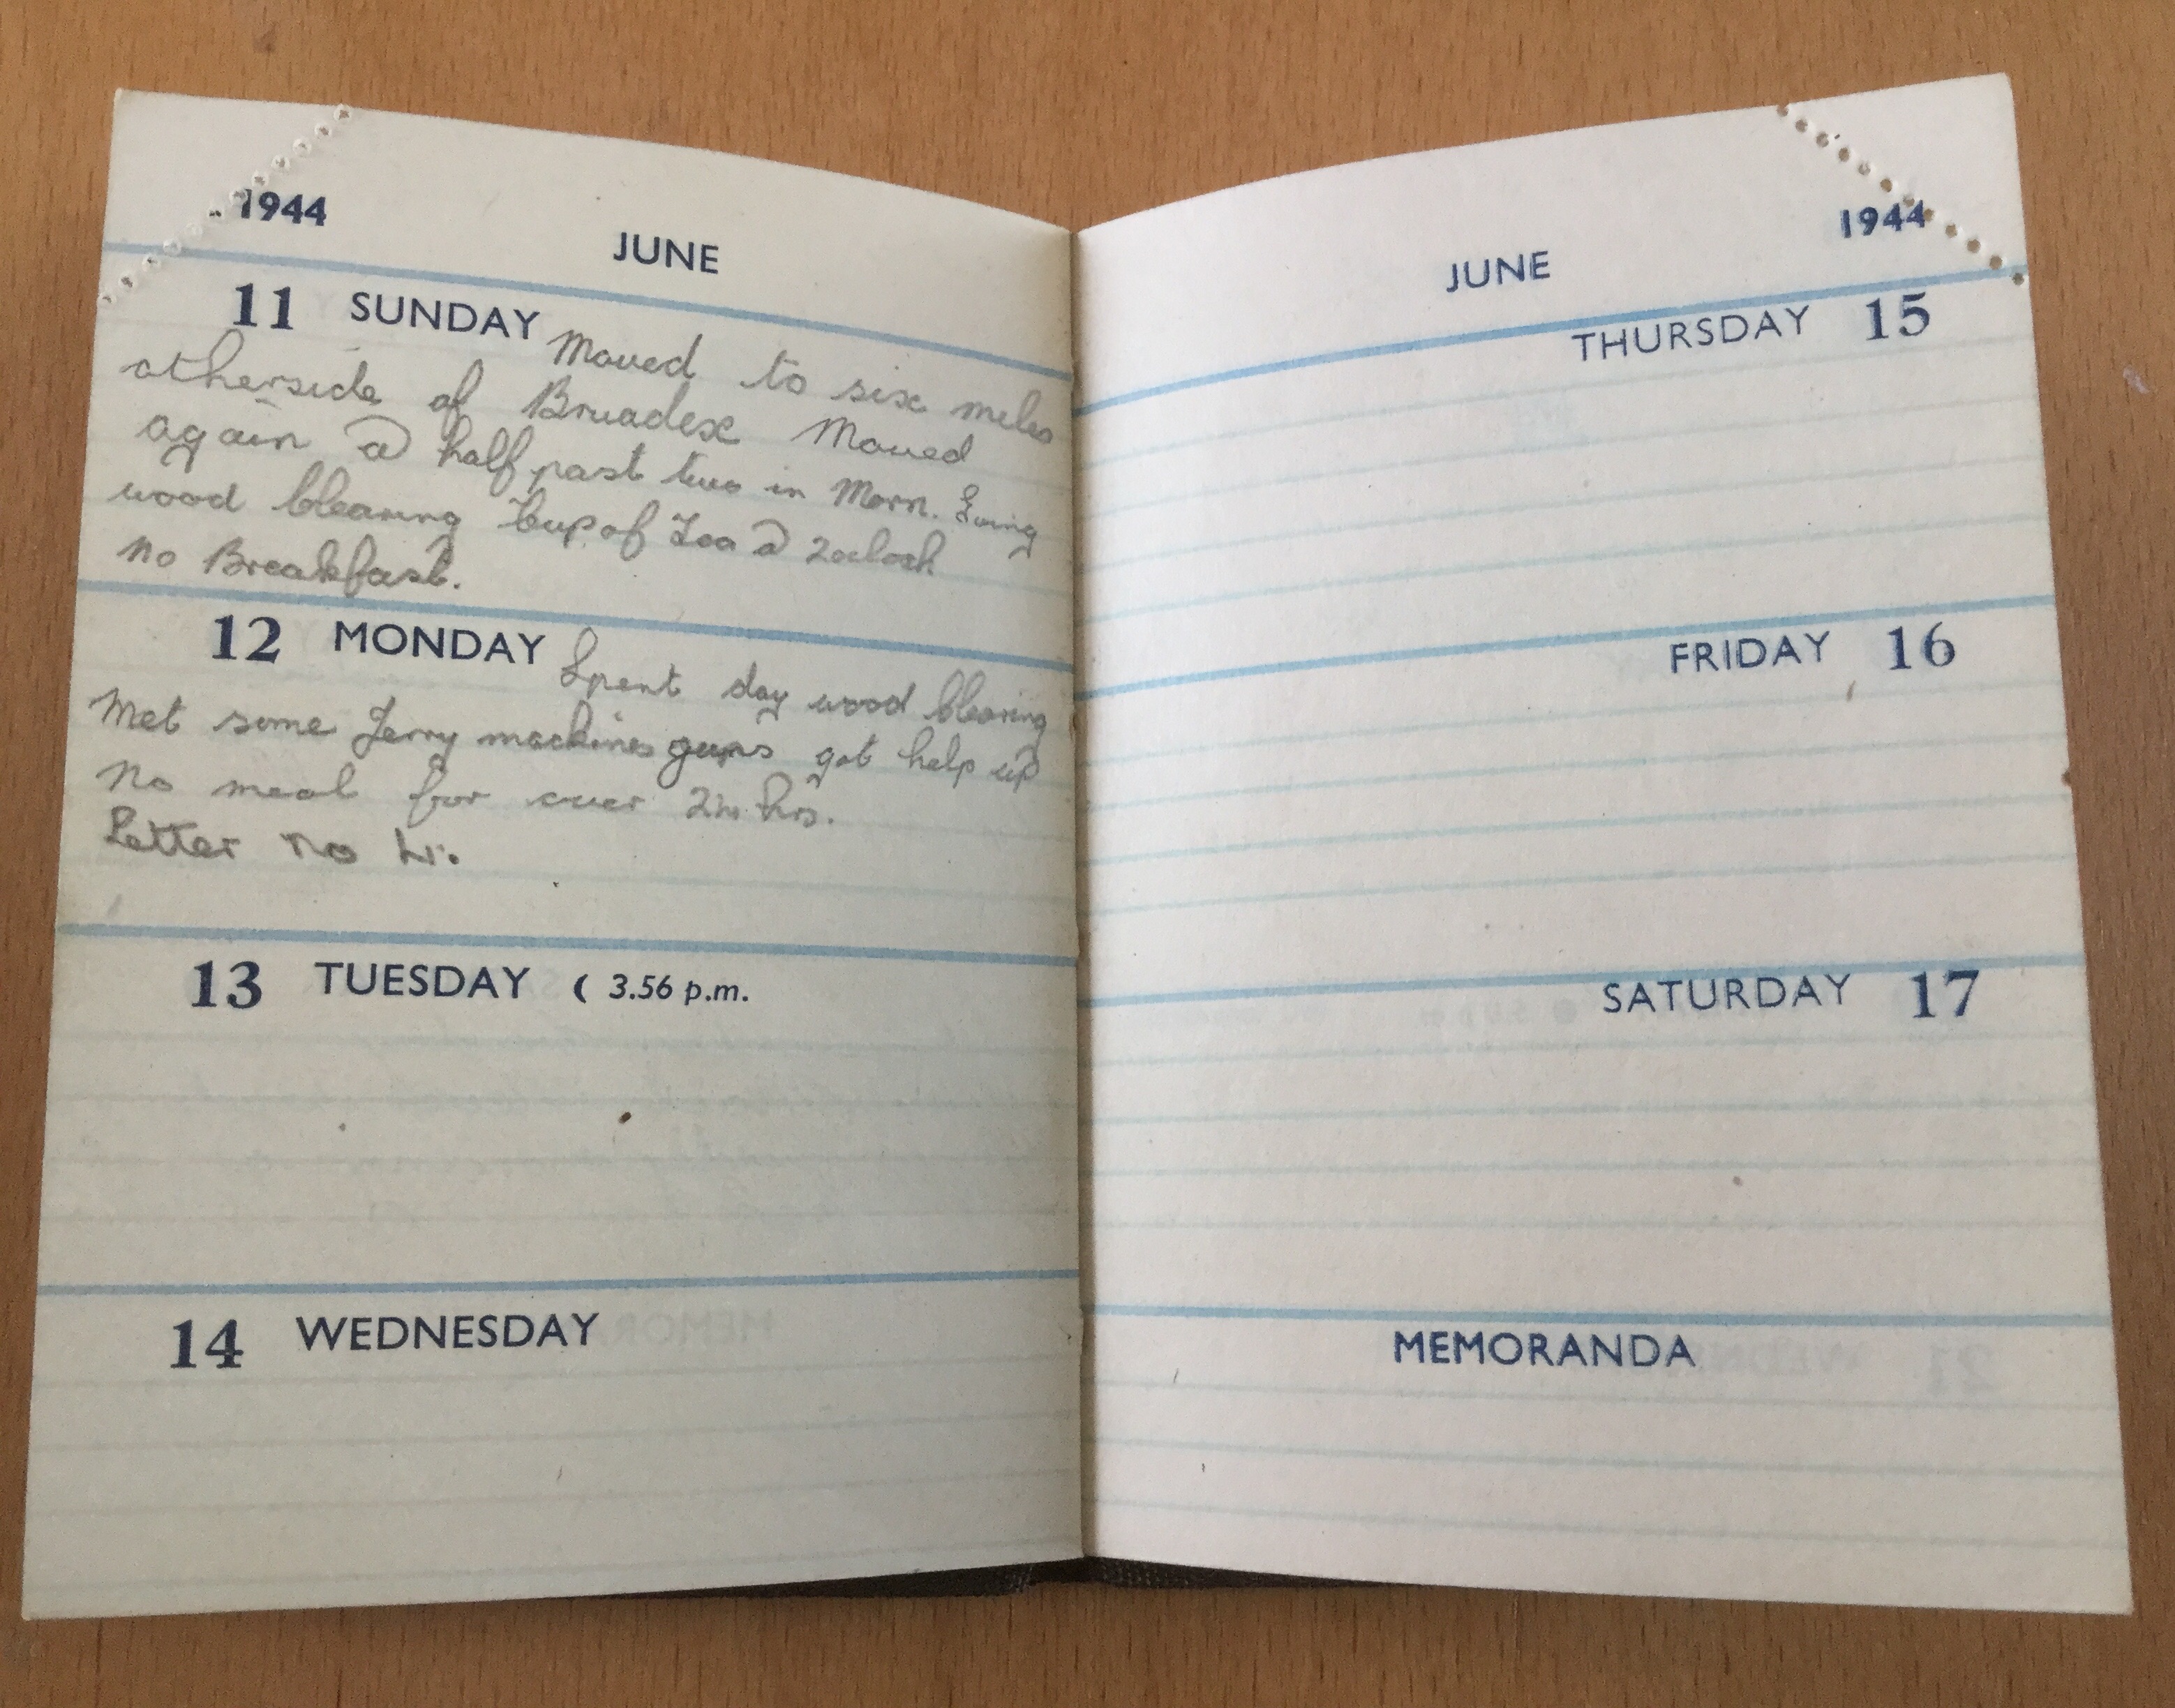 1944
JUNE
11 SUNDAY Moved to six miles
otherside of Bruadex Moved
again @ half past two in Morn. Going
wood clearing Cup of Tea @ 2oclock
No Breakfast.
12 MONDAY Spent day wood clearing
Met some Jerry machines guns got help up
No meal for over 24 hrs.
Letter no
13 TUESDAY ☾ 3.56 p.m.
14 WEDNESDAY
1944
JUNE
THURSDAY 15
FRIDAY 16
SATURDAY 17
MEMORANDA